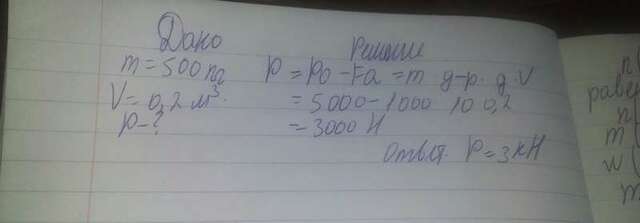 Дано
Решение
m = 500 кг
P = P0 - Fa = m g - p. g. V
V = 0,2 м³.
= 5000 - 1000 10 0,2
P - ?
= 3000 Н
Ответ. P = 3 кН
равен
n
m
w
m